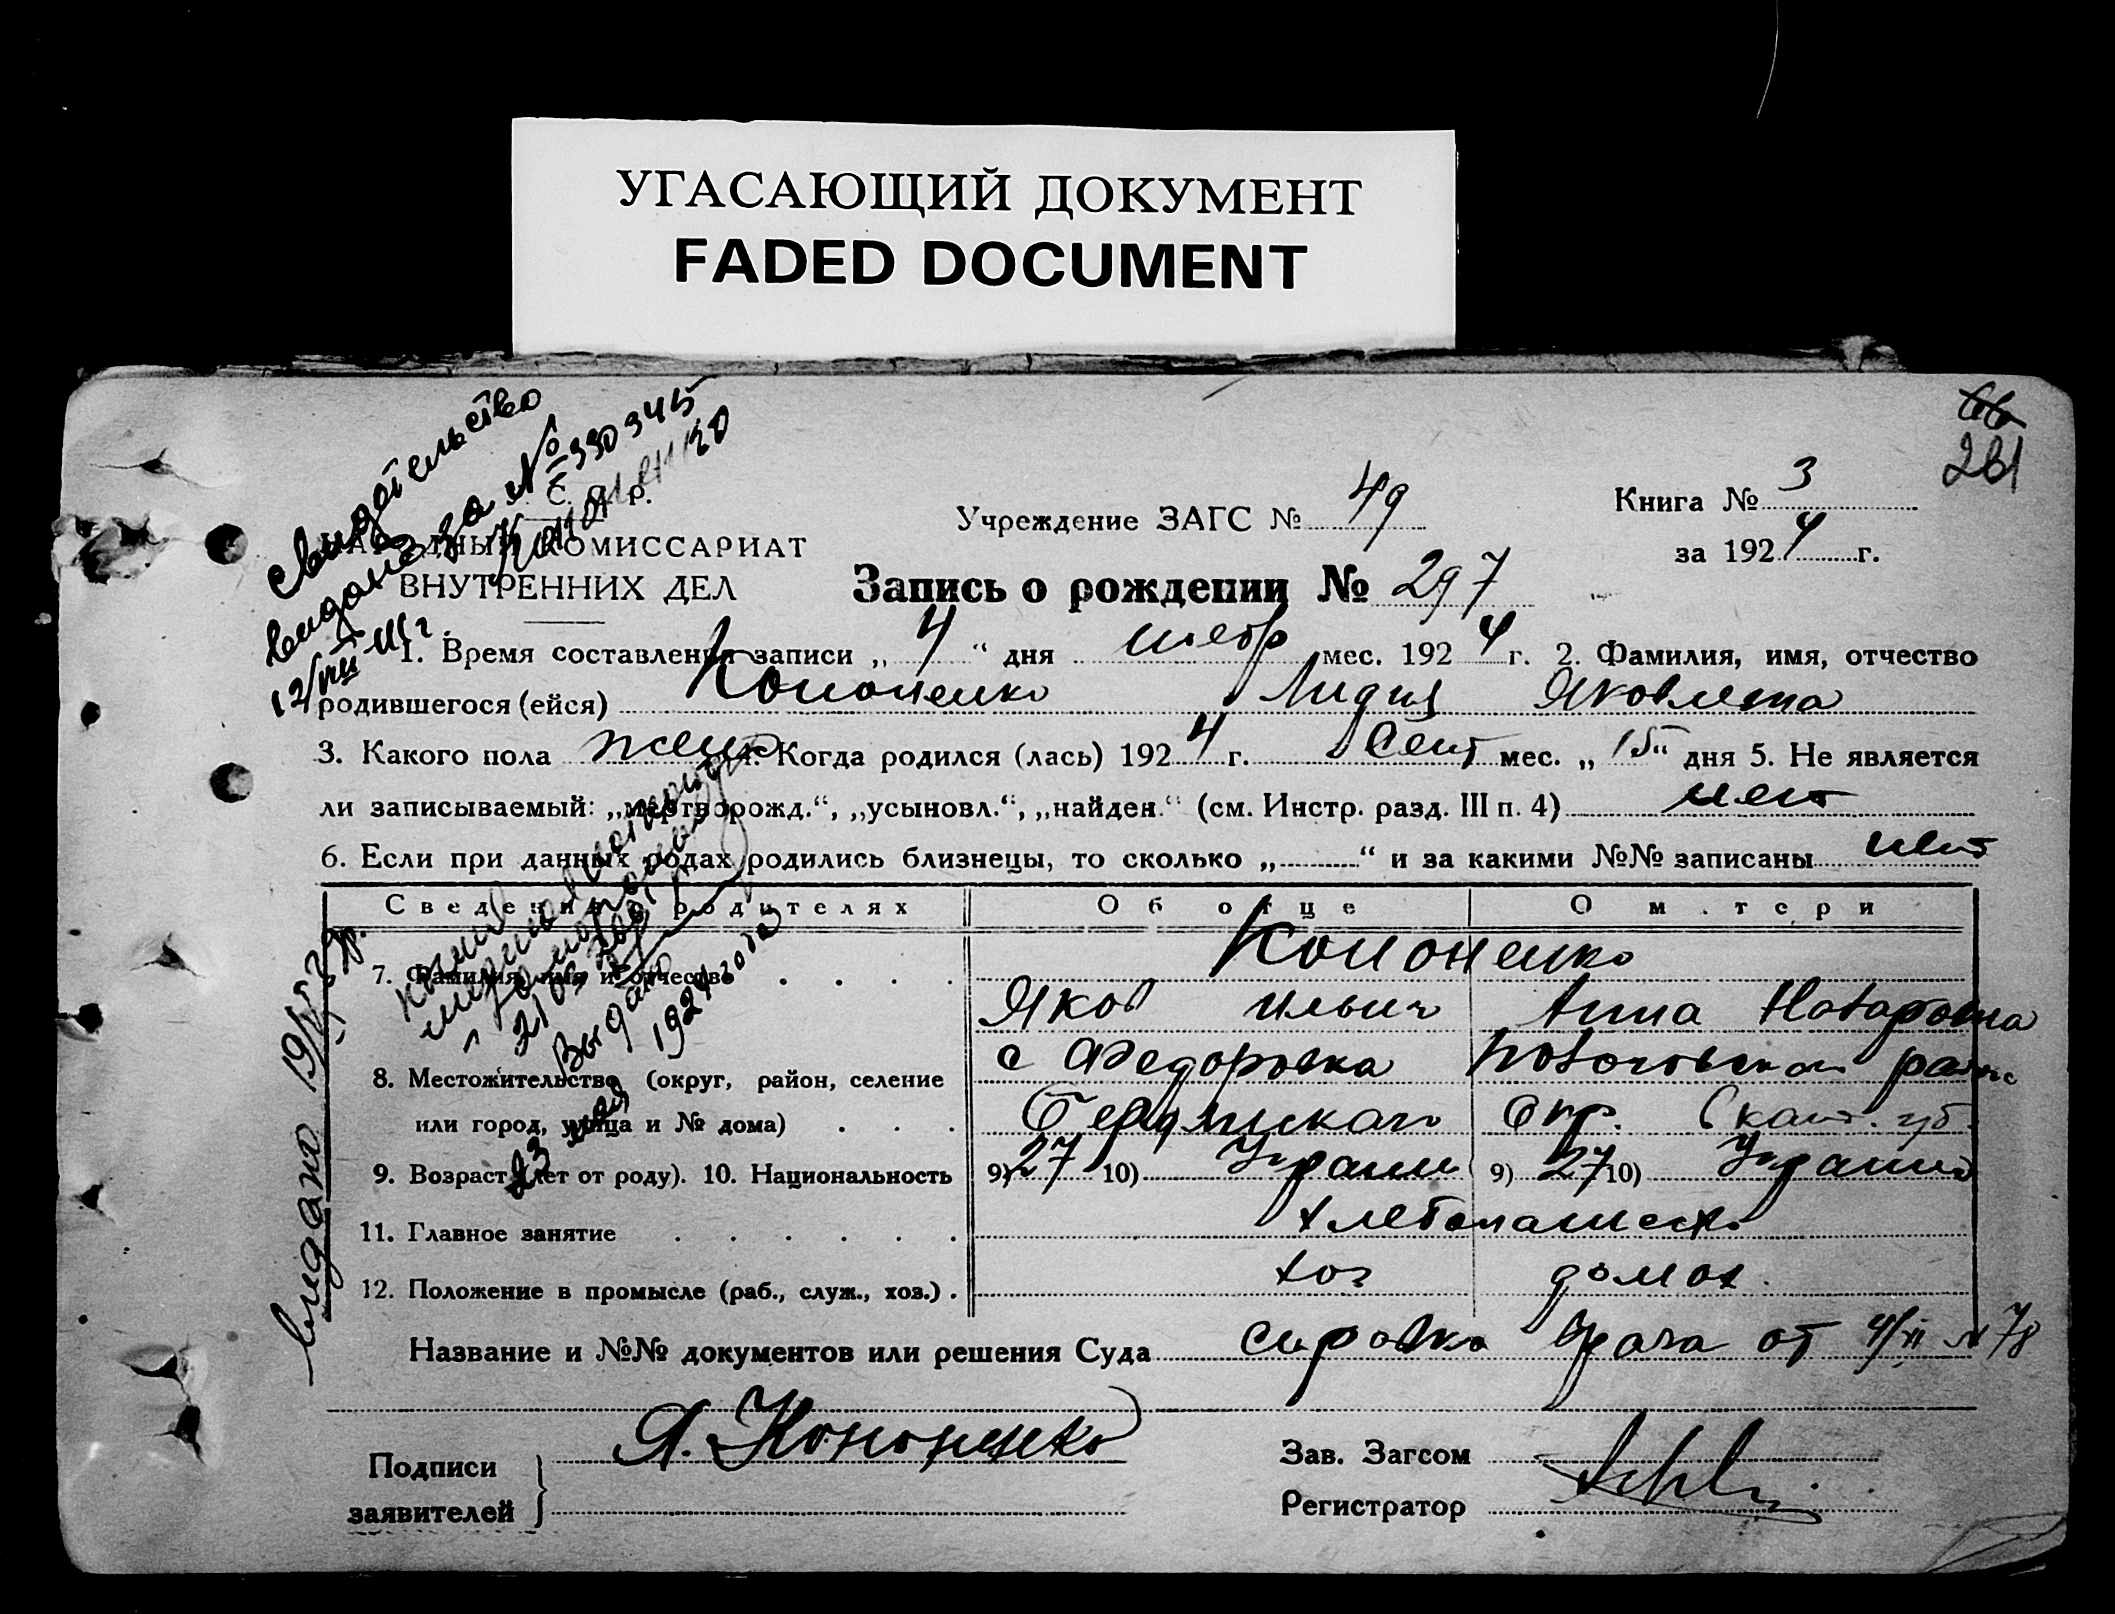 УГАСАЮЩИЙ ДОКУМЕНТ
FADED DOCUMENT
Свидетельство
видано за № 330345
Кононенко
281
С. Р.
НАРОДНЫЙ КОМИССАРИАТ
ВНУТРЕННИХ ДЕЛ
Учреждение ЗАГС № 49
Книга № 3
за 1924 г.
Запись о рождении № 297
1. Время составления записи „ 4 “ дня мес. 1924 г. 2. Фамилия, имя, отчество
родившегося (ейся) Кононенко Лидия Яковлевна
3. Какого пола женск 4. Когда родился (лась) 1924 г. Сент мес. „ 15 “ дня 5. Не является
ли записываемый: „мертворожд.“, „усыновл.“, „найден.“ (см. Инстр. разд. III п. 4) нет
6. Если при данных родах родились близнецы, то сколько „ “ и за какими №№ записаны нет
Сведения о родителях Об отце О матери
7. Фамилия, имя и отчество Кононенко
Яков Ильич Анна Назаровна
8. Местожительство (округ, район, селение с Федоровка
или город, улица и № дома) Бердянского Окр.
9. Возраст (лет от роду). 10. Национальность 9) 27 10) Украин 9) 27 10) Украин
11. Главное занятие хлебопашест
12. Положение в промысле (раб., служ., хоз.) хоз домох
Название и №№ документов или решения Суда справка врача от 4/XI № 78
Подписи
заявителей
Я. Кононенко
Зав. Загсом
Регистратор
Выдан
1924 года
видано